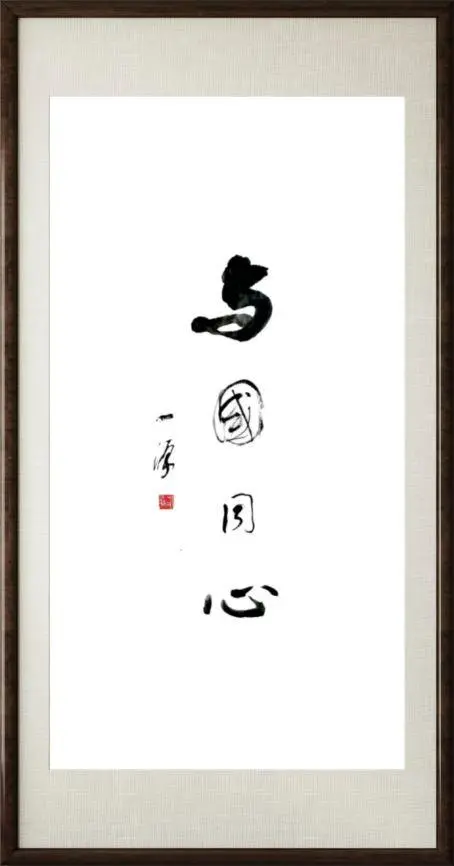 与國同心
一源